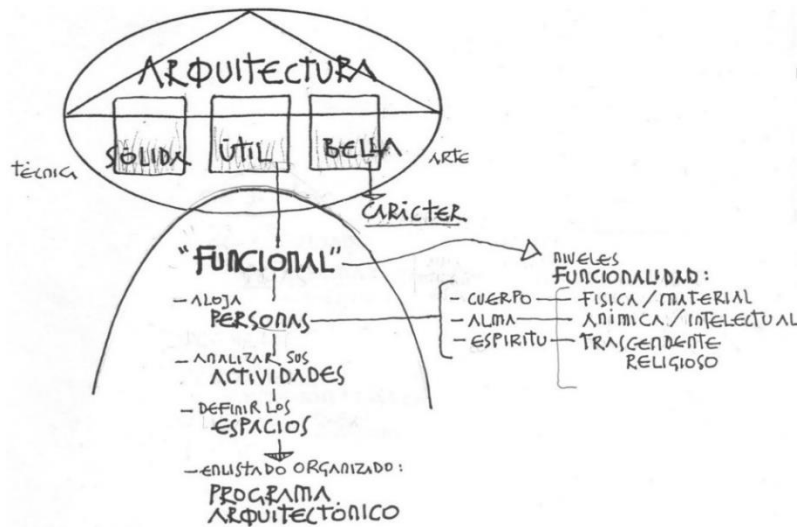 ARQUITECTURA
SÓLIDA ÚTIL BELLA
TÉCNICA
ARTE
CARÁCTER
"FUNCIONAL"
- ALOJA
PERSONAS
- ANALIZAR SUS
ACTIVIDADES
- DEFINIR LOS
ESPACIOS
- ENLISTADO ORGANIZADO:
PROGRAMA
ARQUITECTÓNICO
NIVELES
FUNCIONALIDAD:
- CUERPO - FÍSICA / MATERIAL
- ALMA - ANÍMICA / INTELECTUAL
- ESPÍRITU - TRASCENDENTE
RELIGIOSO